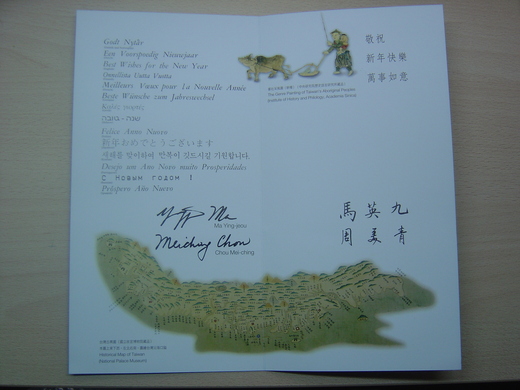 Godt Nytår
Een Voorspoedig Nieuwjaar
Best Wishes for the New Year
Onnellista Uutta Vuotta
Meilleurs Vœux pour La Nouvelle Année
Beste Wünsche zum Jahreswechsel
Felice Anno Nuovo
新年おめでとうございます
새해를 맞이하여 만복이 깃드시길 기원합니다.
Desejo um Ano Novo muito Prosperidades
С Новым годом !
Próspero Año Nuevo
Ma Ying-jeou
Meiching Chow
Chow Mei-ching
Historical Map of Taiwan
National Palace Museum
敬祝
新年快樂
萬事如意
The Genre Painting of Taiwan's Aboriginal Peoples
Institute of History and Philology, Academia Sinica
馬英九
周美青